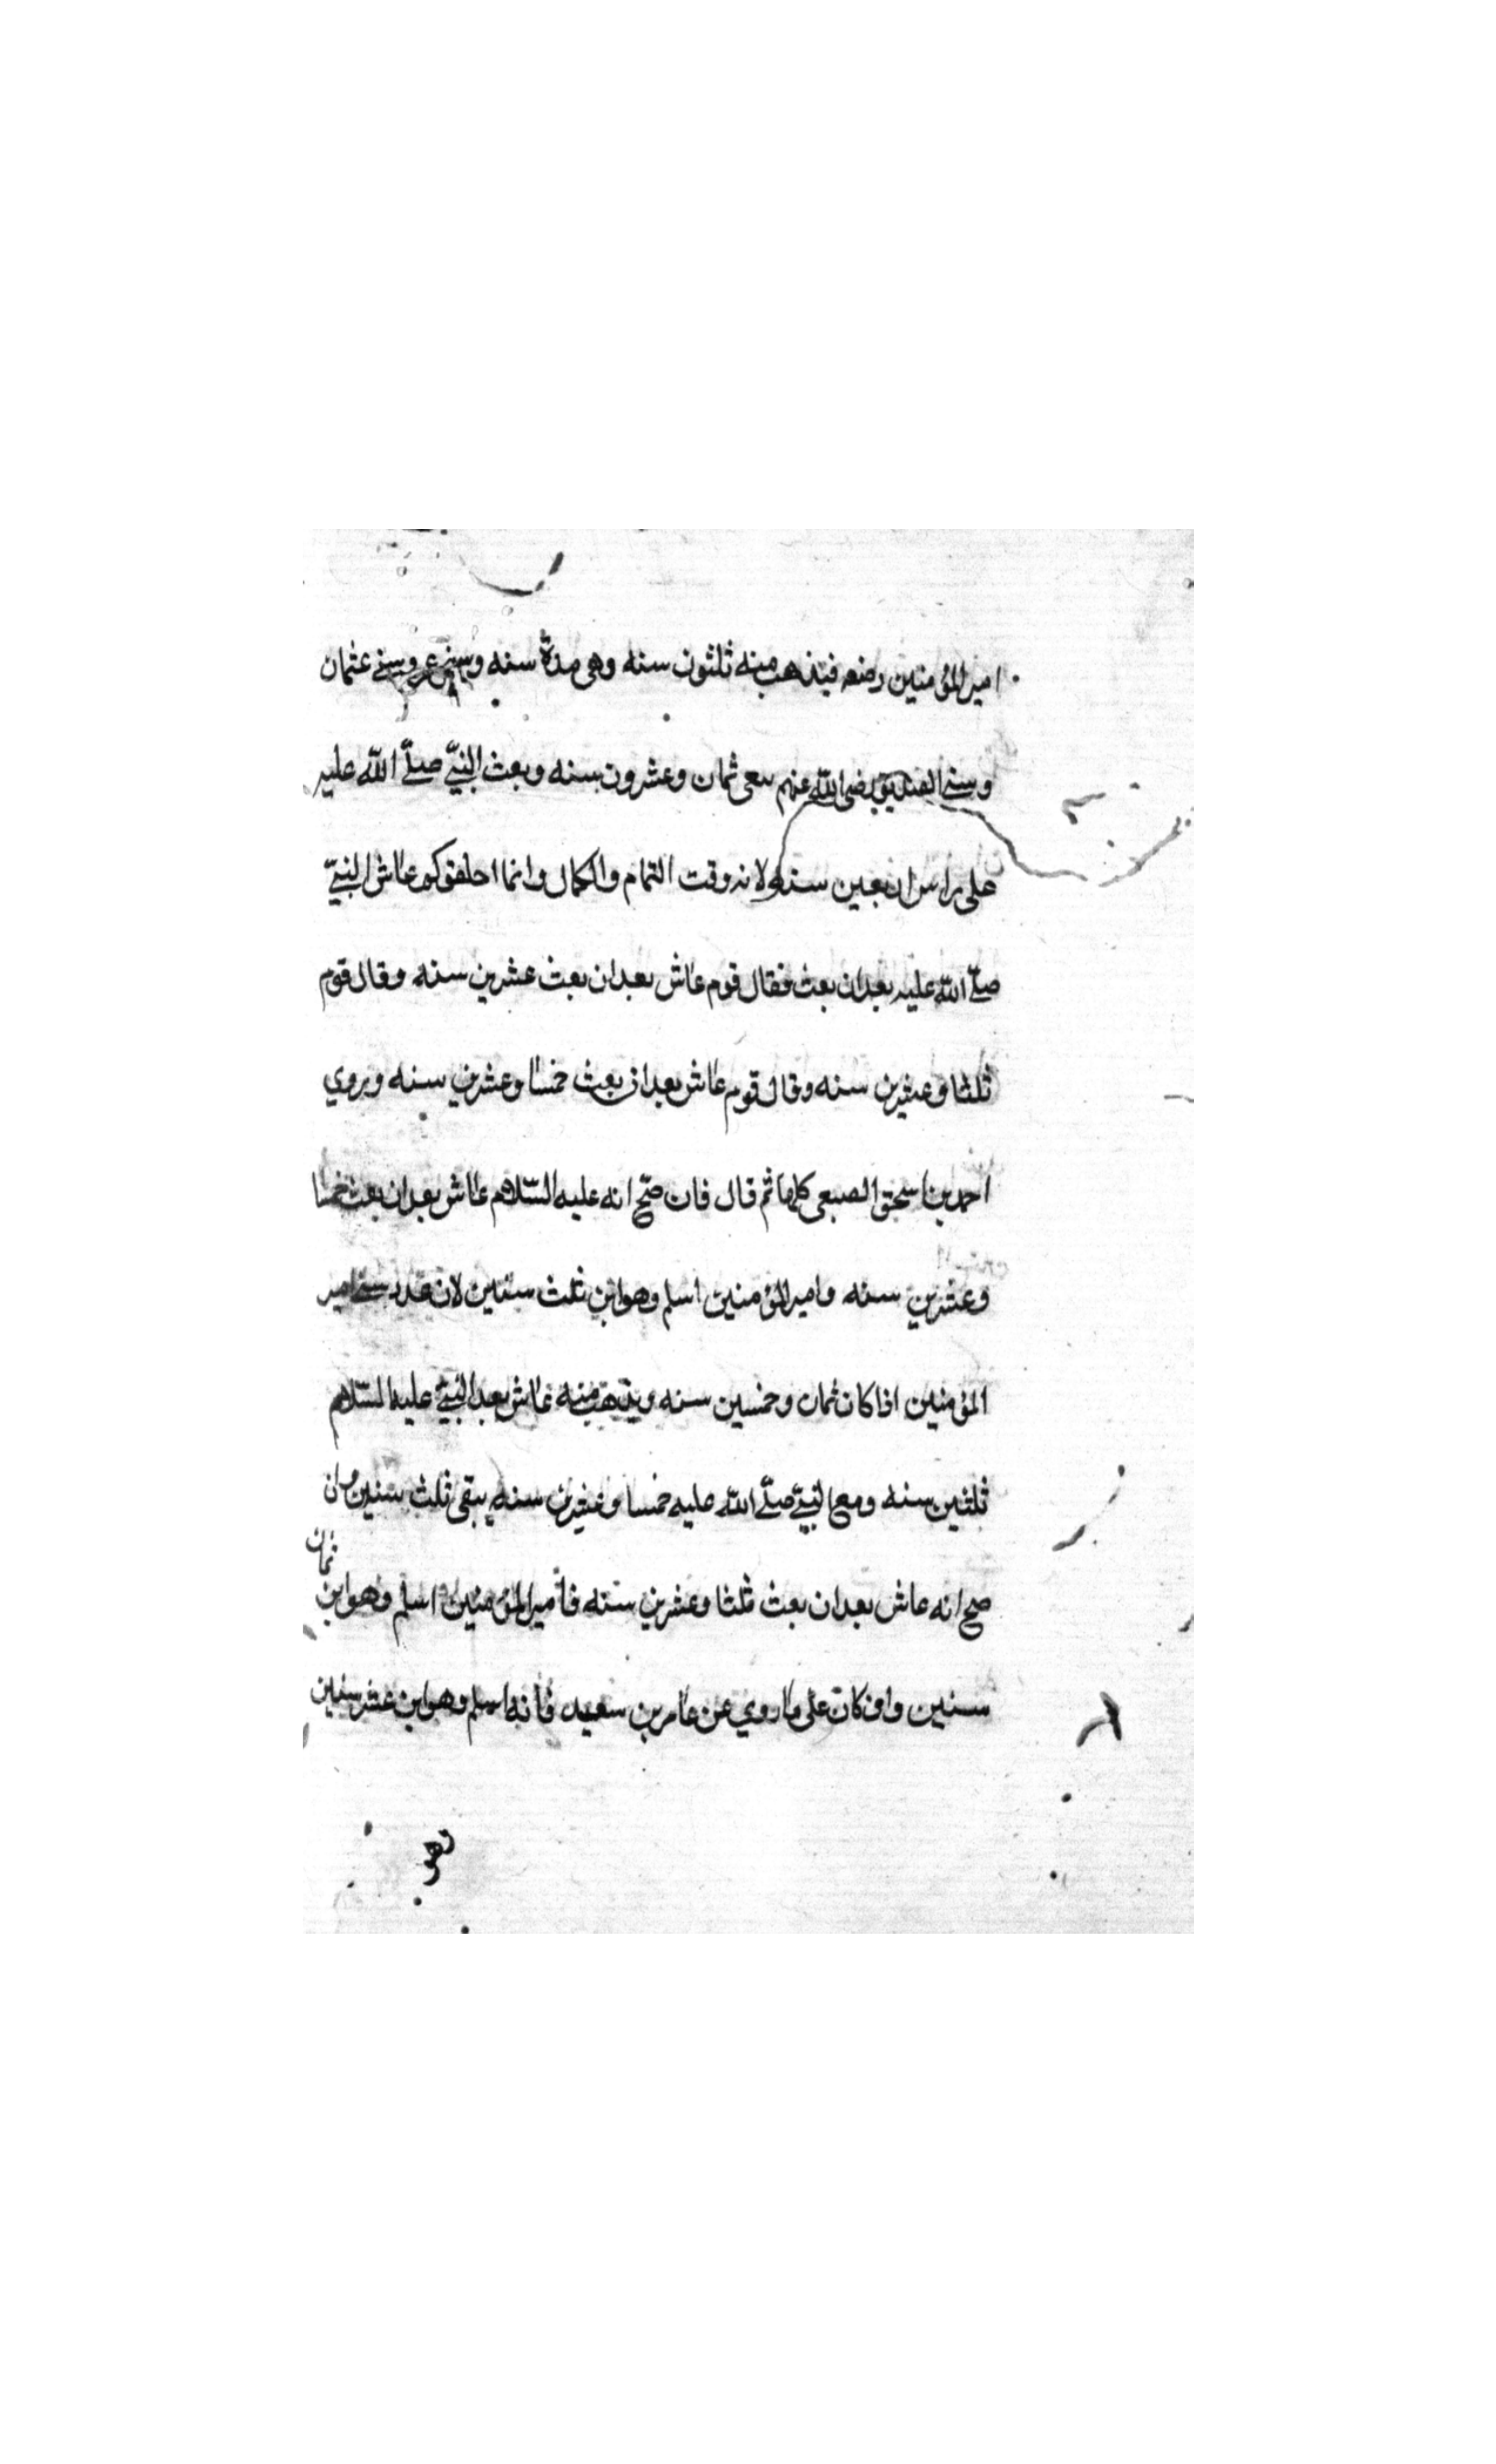 امير المؤمنين رضعه فيذهب مينه ثلثون سنه وهي مدة سنه وسني عمر وسني عثمان
وسني الصديق رضي الله عنهم يبقى ثمان وعشرون سنه وبعث النبيّ صلّى الله عليه
على راس اربعين سنه لانه وقت التمام والكمال وانما اختلفو كم عاش النبيّ
صلّى الله عليه بعد ان بعث فقال قوم عاش بعد ان بعث عشرين سنه وقال قوم
ثلثا وعشرين سنه وقال قوم عاش بعد ان بعث خمسا وعشرين سنه ويروي
احمد بن اسحق الصبعي كلها ثم قال فان صّح انه عليه السّلام عاش بعد ان بعث خمسا
وعشرين سنه وامير المؤمنين اسلم وهو ابن ثلث سنين لان عدد سني امير
المؤمنين اذا كان ثمان وخمسين سنه ويذهب منه عاش بعد النبيّ عليه السّلام
ثلثين سنه ومع النبيّ صلّى الله عليه خمسا وعشرين سنه يبقى ثلث سنين وان
صح انه عاش بعد ان بعث ثلثا وعشرين سنه فامير المؤمنين اسلم وهو ابن ثمان
سنين وان كان على ما روي عن عامر بن سعيد فانه اسلم وهو ابن عشر سنين